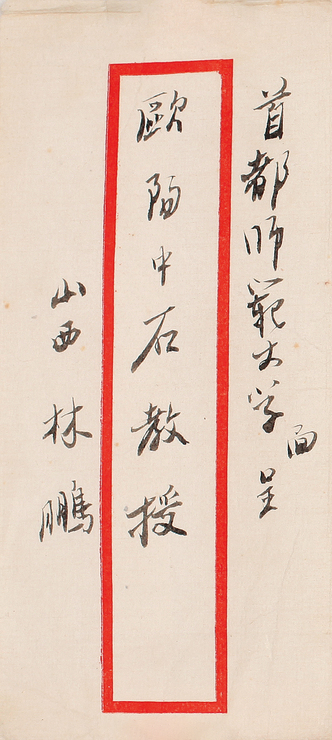 首都师範大学面呈
歐陽中石教授
山西林鵬